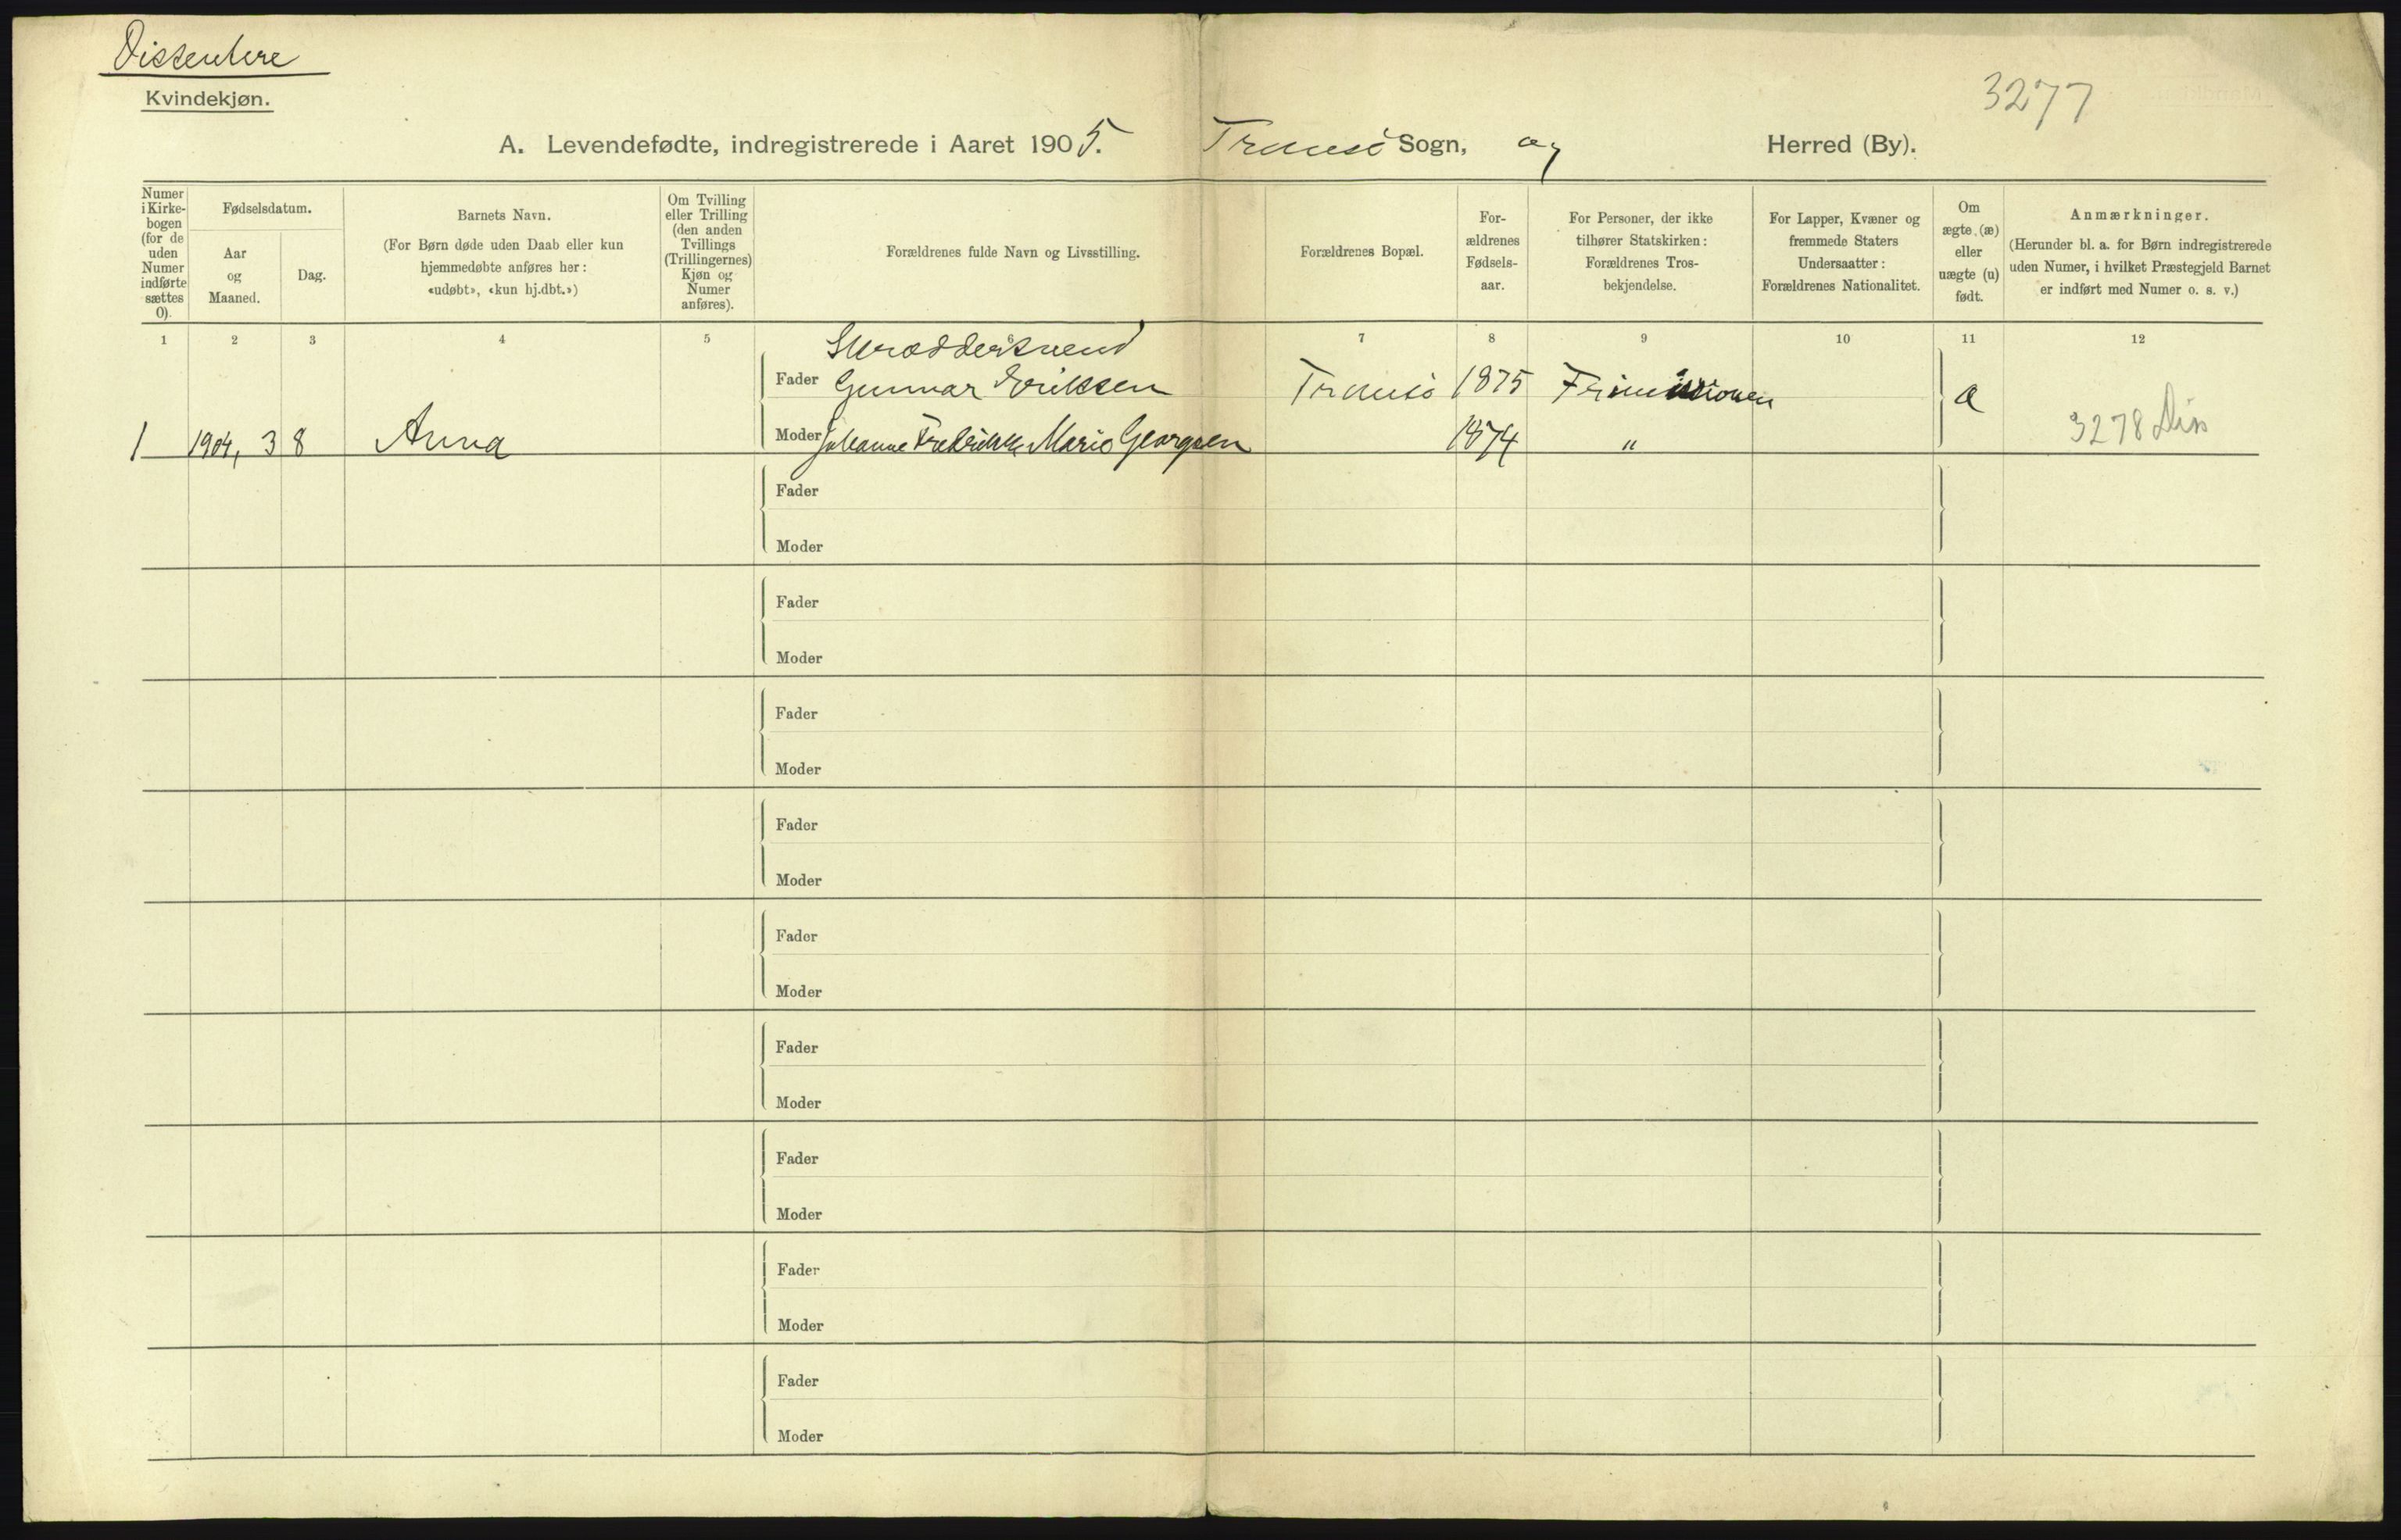 Dissentere
Kvindekjøn.
3277
A. Levendefødte, indregistrerede i Aaret 1905. Tromsö Sogn, og Herred (By).
Numer i Kirkebogen (for de uden Numer indførte sættes 0).
Fødselsdatum.
Aar og Maaned.
Dag.
Barnets Navn.
(For Børn døde uden Daab eller kun hjemmedøbte anføres her: «udøbt», «kun hj.dbt.»)
Om Tvilling eller Trilling (den anden Tvillings (Trillingernes) Kjøn og Numer anføres).
Forældrenes fulde Navn og Livsstilling.
Forældrenes Bopæl.
For-
ældrenes
Fødsels-
aar.
For Personer, der ikke
tilhører Statskirken:
Forældrenes Tros-
bekjendelse.
For Lapper, Kvæner og
fremmede Staters
Undersaatter:
Forældrenes Nationalitet.
Om
ægte (æ)
eller
uægte (u)
født.
Anmærkninger.
(Herunder bl. a. for Børn indregistrerede
uden Numer, i hvilket Præstegjeld Barnet
er indført med Numer o. s. v.)
1 2 3 4 5 6 7 8 9 10 11 12
Skræddersvend
Fader Gunnar Eriksen Tromsö 1875 Frimissionen æ
1 1904, 3 8 Anna Moder Johanne Fredrikke Marie Georgsen 1874 " 3278 Diss
Fader
Moder
Fader
Moder
Fader
Moder
Fader
Moder
Fader
Moder
Fader
Moder
Fader
Moder
Fader
Moder
Fader
Moder